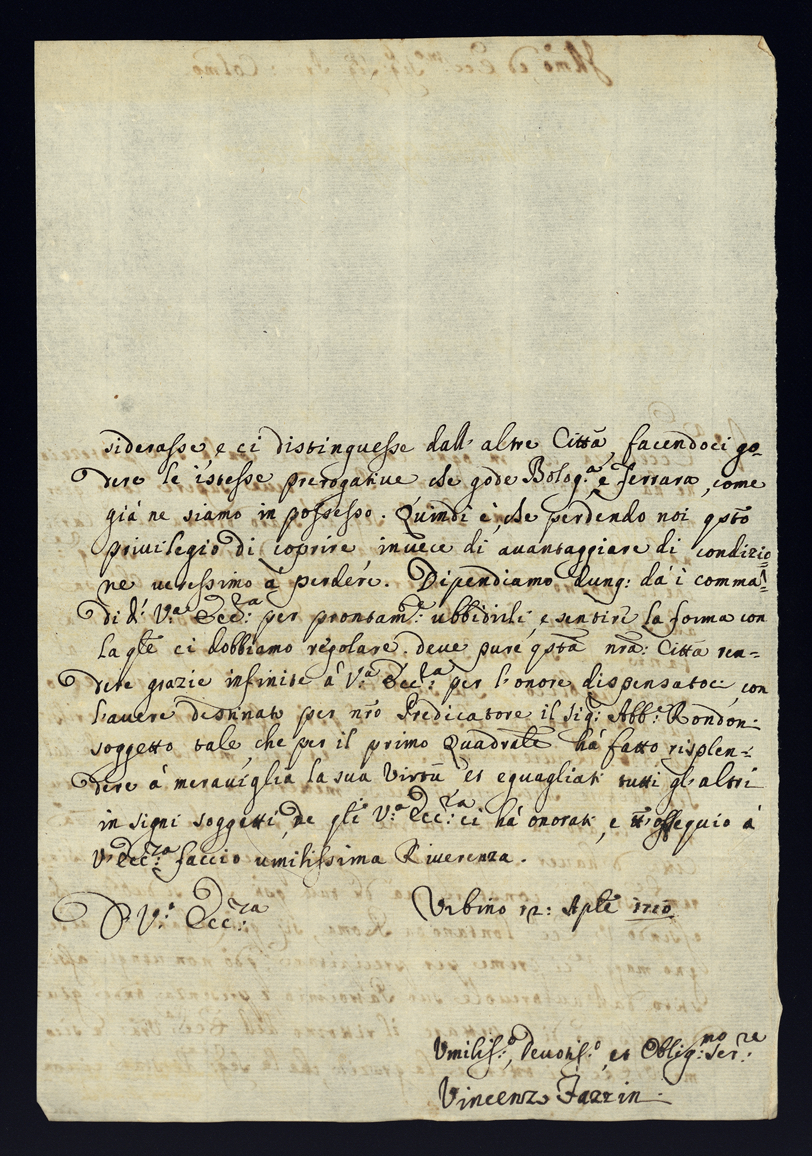 siderasse e ci distinguesse dall' altre Città, facendoci go-
dere le istesse prerogative che gode Bolog.ª e Ferrara, come
già ne siamo in possesso. Quindi è, che perdendo noi qsto
privilegio di coprire invece di avantaggiare di condizio=
ne veressimo à perdere. Dipendiamo dunq: dà i comma=
di d' V.ª Ecc.za: per prontam.te ubbidirli, e sentire la forma con
la qle ci dobbiamo regolare. deve pure qsta nra: Città ren=
dere grazie infinite à V.ª Ecc.za per l'onore dispensatoci, con
l'avere destinato per nro Predicatore il sig.r Abb.e Rondon:
soggetto tale che per il primo Quadrale hà fatto risplen=
dere à meraviglia la sua Virtù et eguagliati tutti gl'altri
insigni soggetti de gli V.ª Ecc.za: ci hà onorati, e ossequio à
V. Ecc.za faccio umilissima Riverenza.
D V.ª Ecc.za
Urbino 12: Aple 1710
Umiliss.o, Devotiss.o, et Oblig.mo Ser.re
Vincenzo Fazzin: